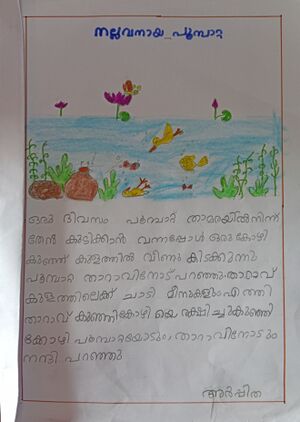 നല്ലവനായ പൂമ്പാറ്റ
ഒരു ദിവസം പൂമ്പാറ്റ താമരയിൽനിന്ന്
തേൻ കുടിക്കാൻ വന്നപ്പോൾ ഒരു കോഴി
കുഞ്ഞ് കുളത്തിൽ വീണു കിടക്കുന്നു
പൂമ്പാറ്റ താറാവിനോട് പറഞ്ഞു താറാവ്
കുളത്തിലേക്ക് ചാടി മീനുകളും എത്തി
താറാവ് കുഞ്ഞികോഴി യെ രക്ഷിച്ചു കുഞ്ഞി
ക്കോഴി പൂമ്പാറ്റയോടും താറാവിനോടും
നന്ദി പറഞ്ഞു
അർപ്പിത